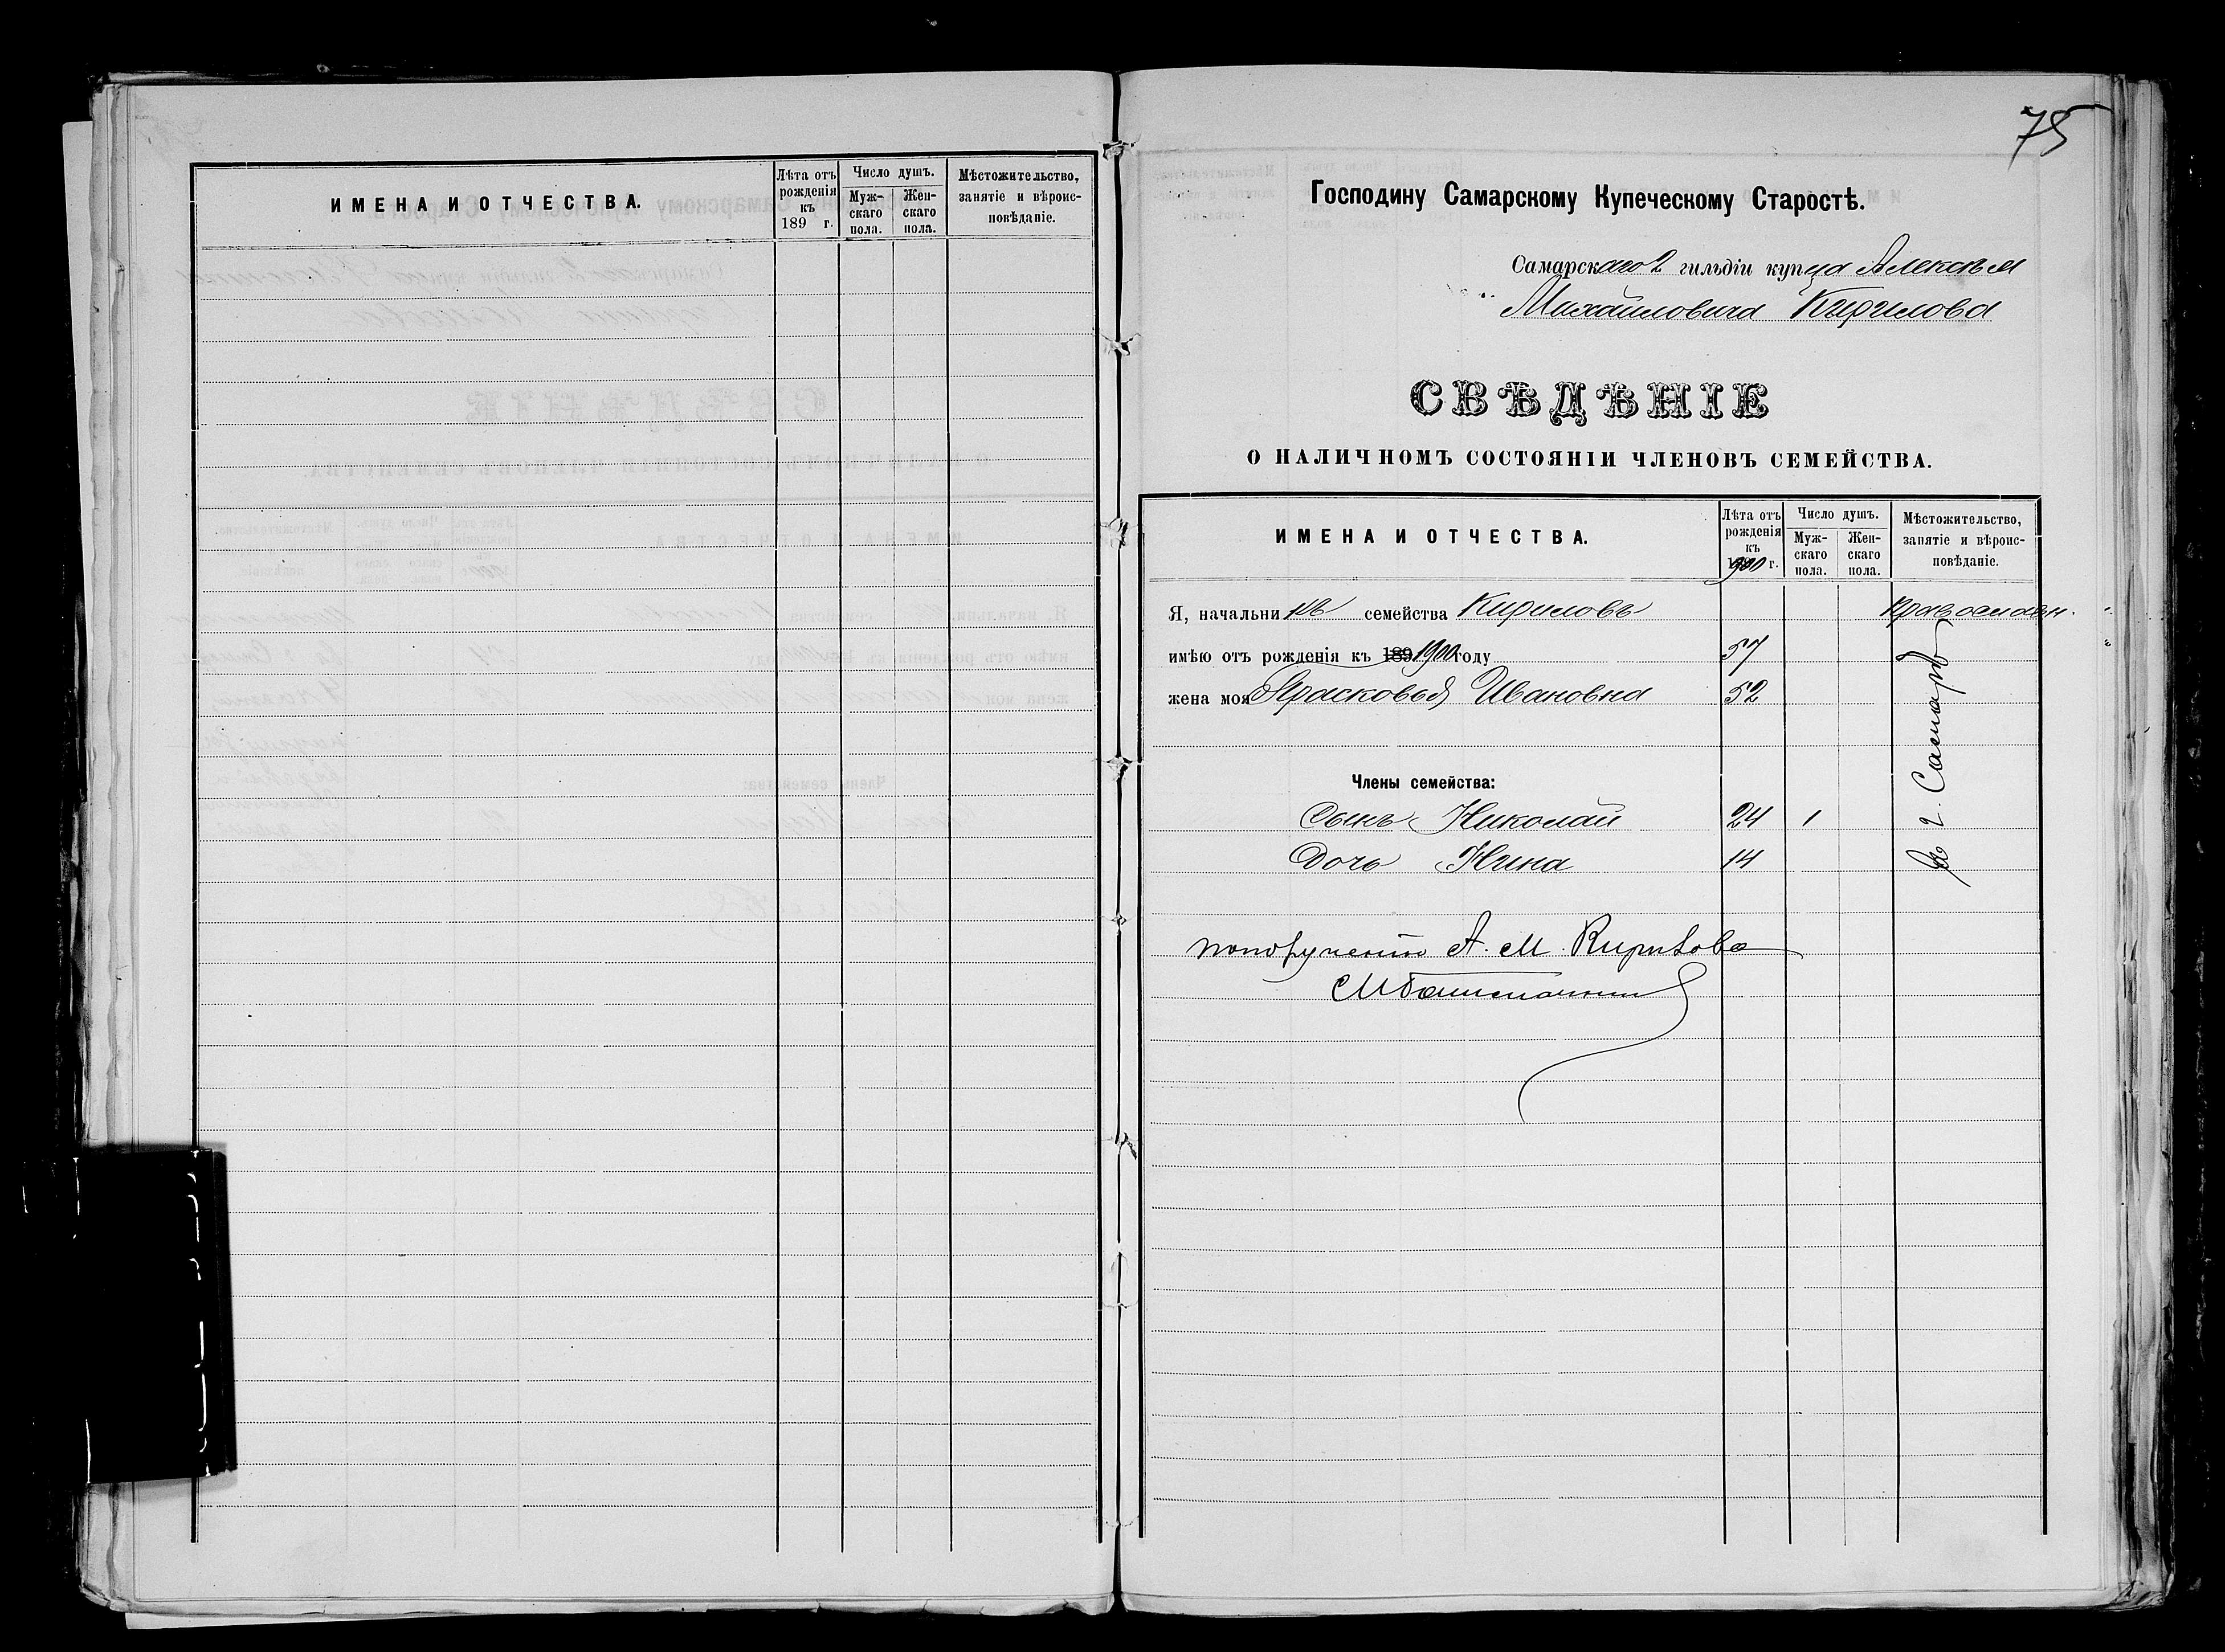 ИМЕНА И ОТЧЕСТВА.
Лѣта отъ рожденія къ 189 г.
Число душъ.
Мужскаго пола.
Женскаго пола.
Мѣстожительство, занятіе и вѣроисповѣданіе.
75
Господину Самарскому Купеческому Старостѣ.
Самарскаго 2 гильдіи купца Алексѣя
Михайловича Кирилова
СВѢДѢНІЕ
О НАЛИЧНОМЪ СОСТОЯНІИ ЧЛЕНОВЪ СЕМЕЙСТВА.
ИМЕНА И ОТЧЕСТВА.
Лѣта отъ рожденія къ 1900 г.
Число душъ.
Мужскаго пола.
Женскаго пола.
Мѣстожительство, занятіе и вѣроисповѣданіе.
Я, начальникъ семейства Кириловъ Православн.
имѣю отъ рожденія къ 189 1900 году 57
жена моя Прасковья Ивановна 52
Члены семейства:
Сынъ Николай 24 1
Дочь Нина 14
В г. Самарѣ
по порученію А. М. Кирилова